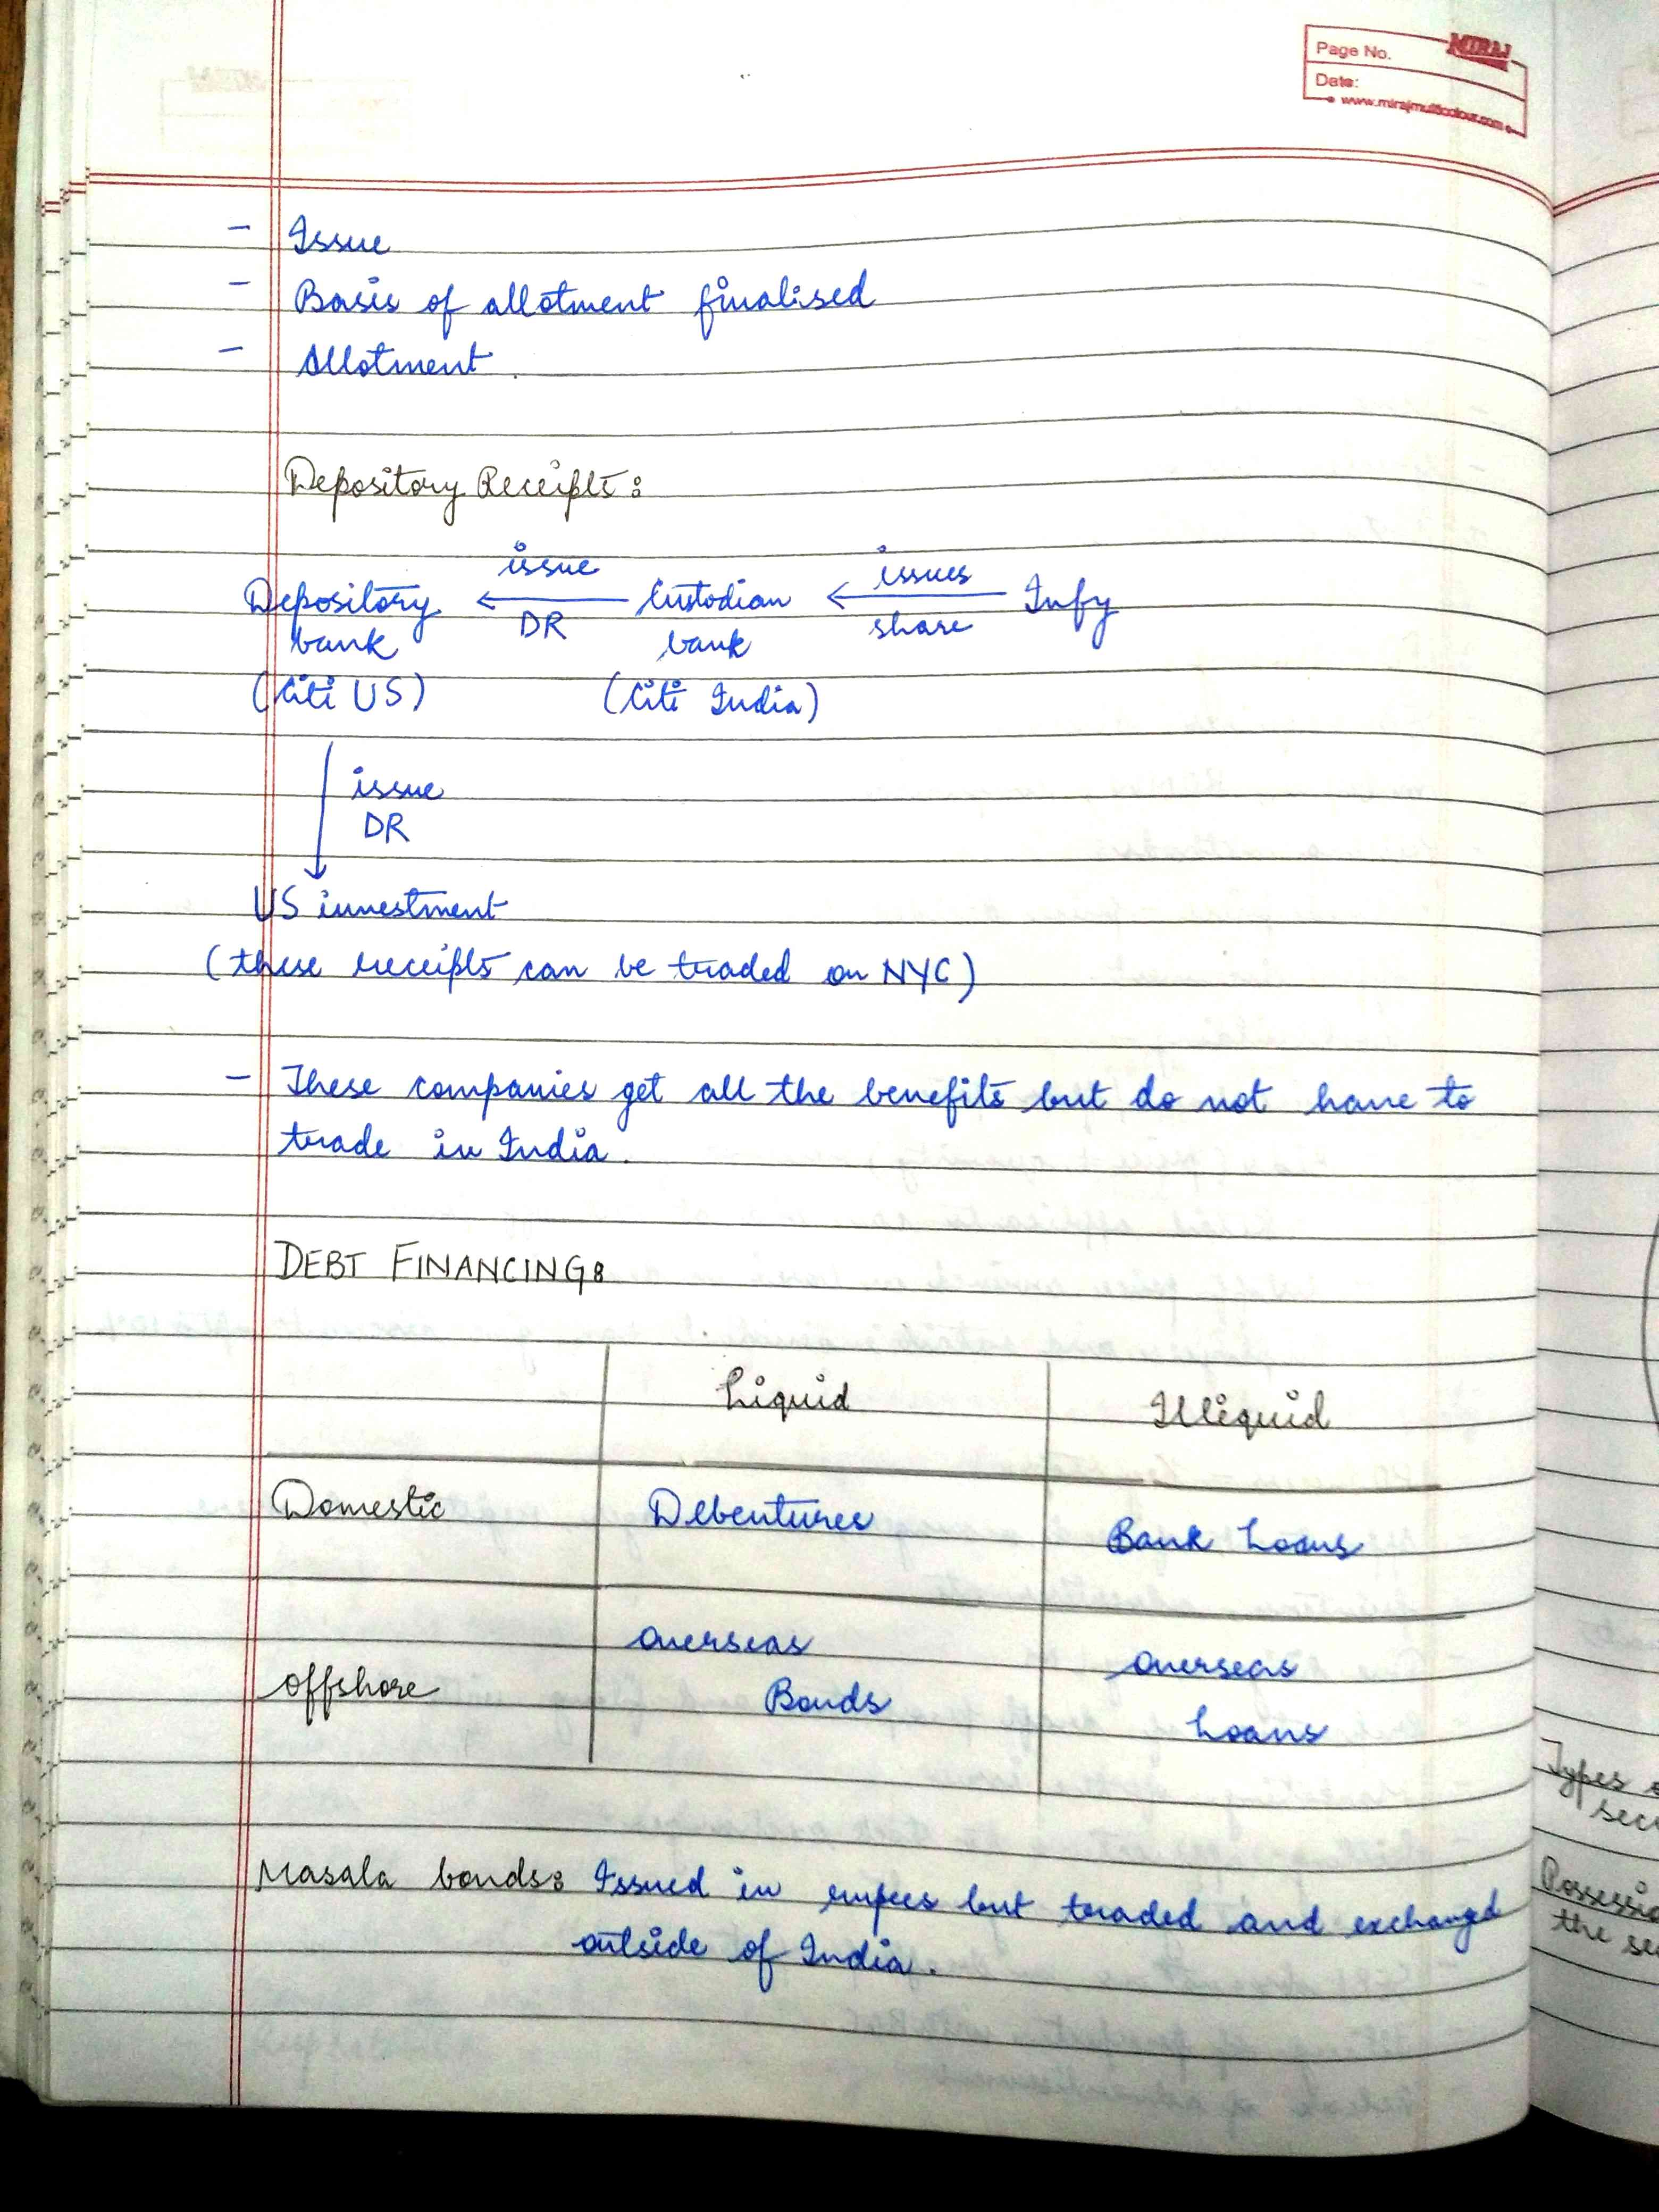 Page No.
MIRAJ
Date:
www.mirajmulticolour.com
- Issue
- Basis of allotment finalised
- Allotment.
Depository Receipts:
issue issues
Depository ← Custodian ← Infy
DR share
bank bank
(Citi US) (Citi India)
issue
DR
US investment
(these receipts can be traded on NYC)
- These companies get all the benefits but do not have to
trade in India.
DEBT FINANCING:
Liquid Illiquid
Domestic Debentures Bank Loans
Offshore overseas Bonds overseas Loans
Masala bonds: Issued in rupees but traded and exchanged
outside of India.
Types
Possessio
the se